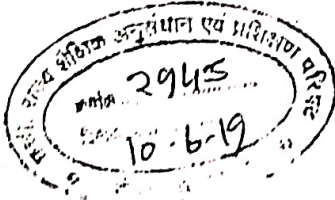 राज्य शैक्षिक अनुसंधान एवं प्रशिक्षण परिषद
क्रमांक 2945
दिनांक 10-6-19